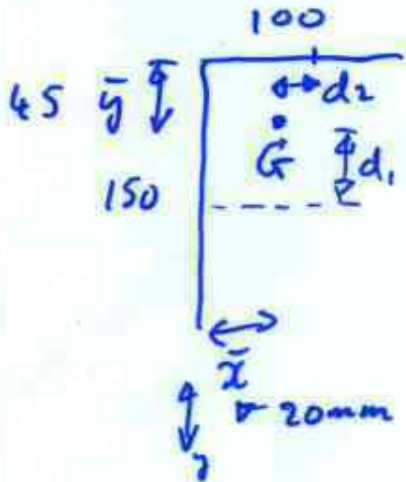 100
45 ȳ d2
G d1
150
x̄
20mm